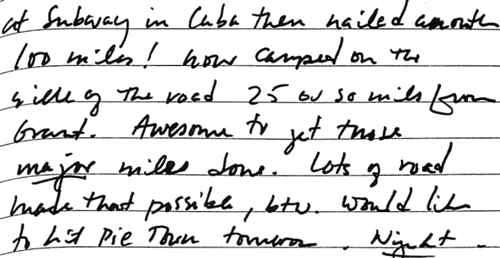 at Subway in Cuba then nailed another
100 miles! now camped on the
side of the road 25 or so miles from
Grant. Awesome to get those
major miles done. Lots of road
made that possible, btw. Would like
to hit Pie Town tomorrow. Night.